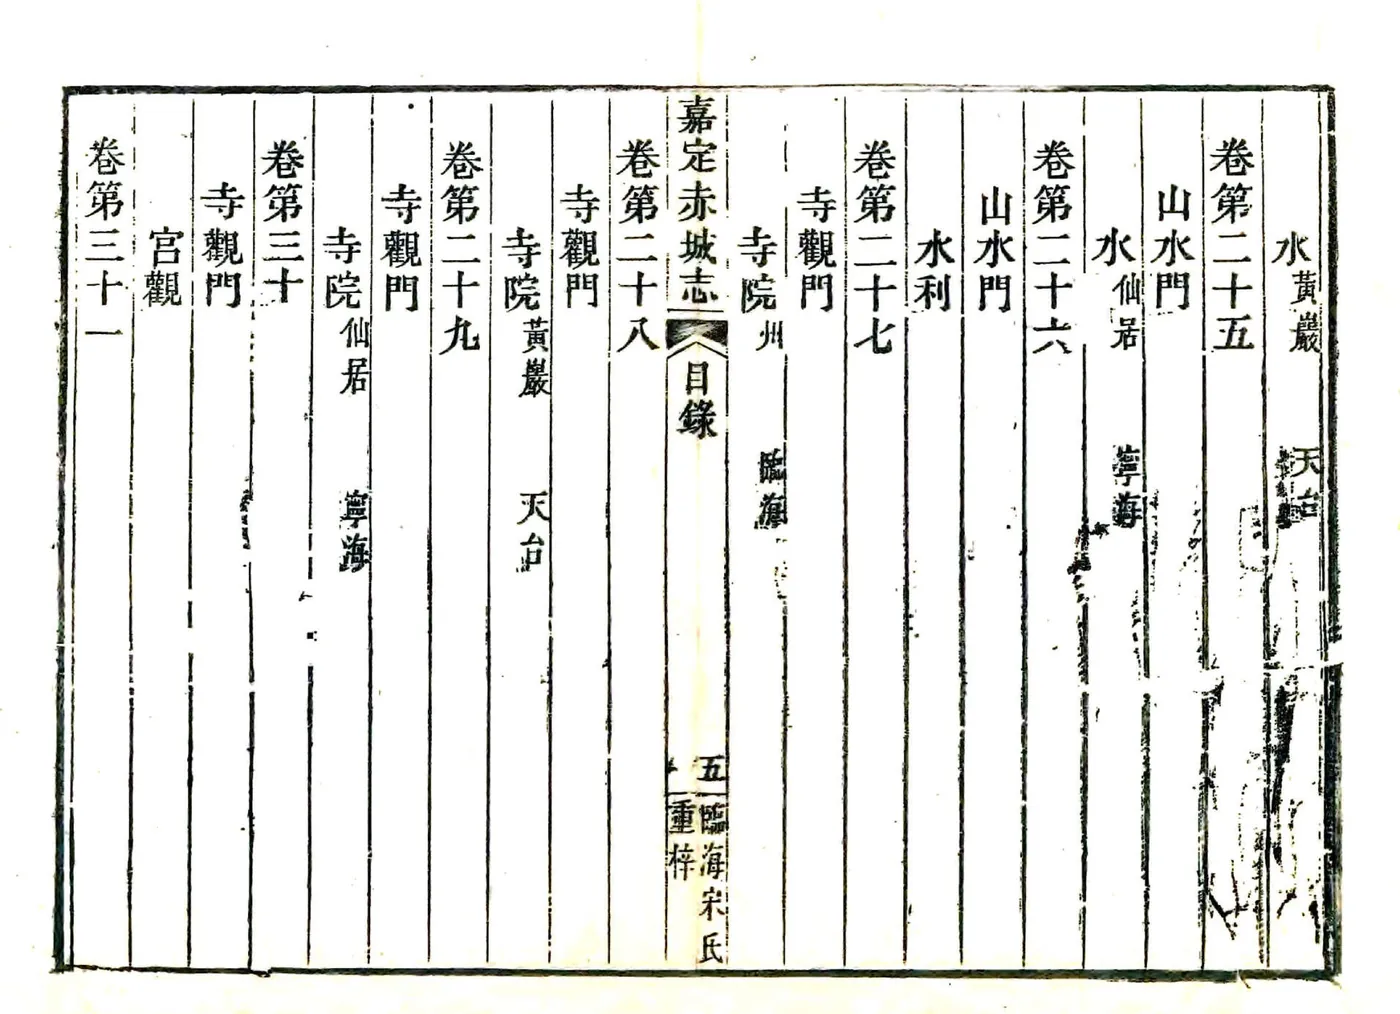 水黃巖 天台
卷第二十五
山水門
水仙居 寧海
卷第二十六
山水門
水利
卷第二十七
寺觀門
寺院州 臨海
嘉定赤城志 目錄 五 臨海宋氏重梓
卷第二十八
寺觀門
寺院黃巖 天台
卷第二十九
寺觀門
寺院仙居 寧海
卷第三十
寺觀門
宮觀
卷第三十一